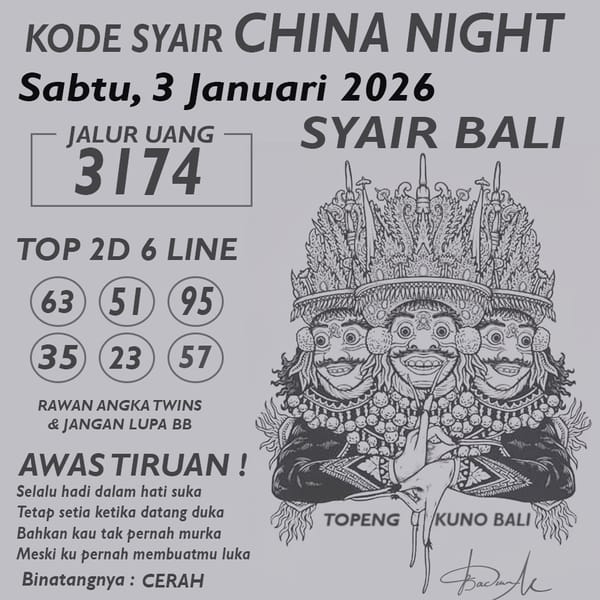 KODE SYAIR CHINA NIGHT
Sabtu, 3 Januari 2026
JALUR UANG
3174
SYAIR BALI
TOP 2D 6 LINE
63 51 95
35 23 57
RAWAN ANGKA TWINS
& JANGAN LUPA BB
AWAS TIRUAN !
Selalu hadi dalam hati suka
Tetap setia ketika datang duka
Bahkan kau tak pernah murka
Meski ku pernah membuatmu luka
Binatangnya : CERAH
TOPENG KUNO BALI